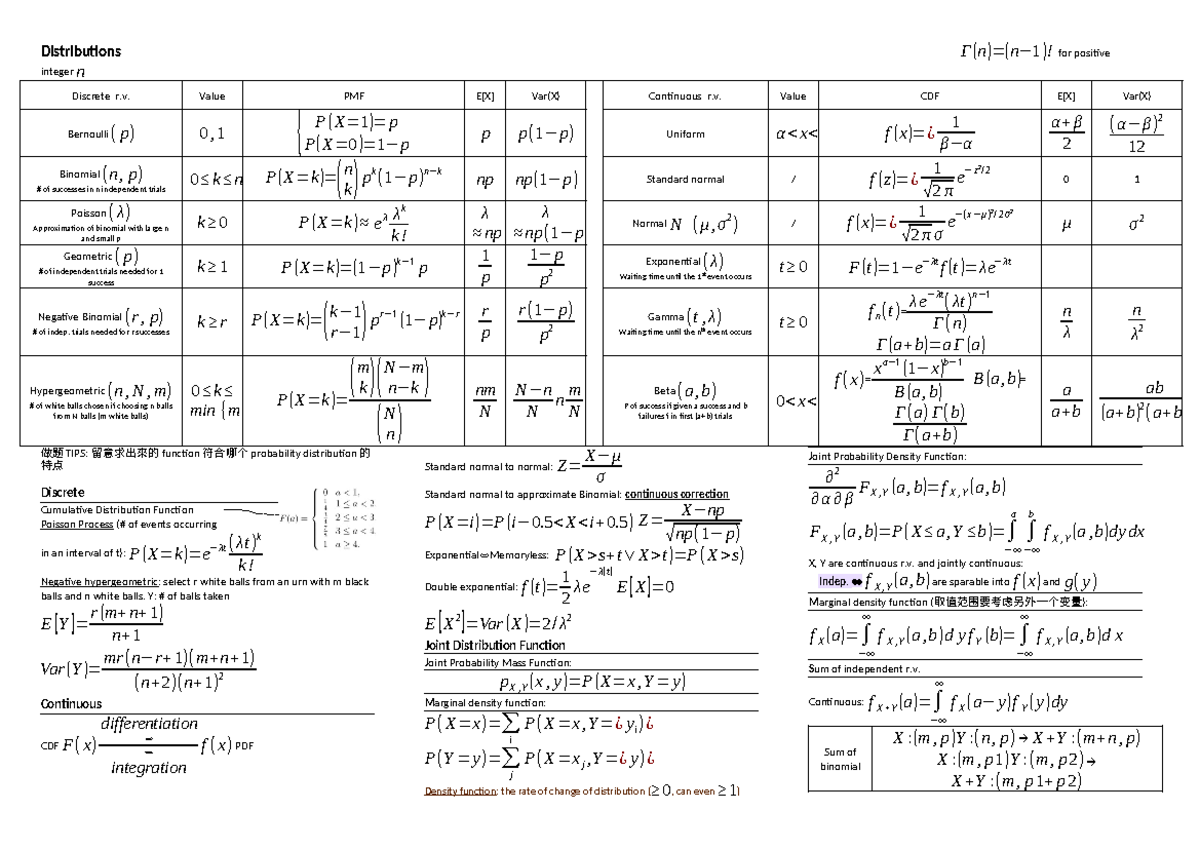 Distributions Γ(n)=(n−1)! for positive
integer n
Discrete r.v. Value PMF E[X] Var(X)
Bernoulli (p) 0,1 {P(X=1)=p P(X=0)=1−p p p(1−p)
Binomial (n,p) 0≤k≤n P(X=k)=(n k)p^k(1−p)^{n−k} np np(1−p)
# of successes in n independent trials
Poisson (λ) k≥0 P(X=k)≈e^λ λ^k/k! λ ≈np λ ≈np(1−p
Approximation of binomial with large n
and small p
Geometric (p) k≥1 P(X=k)=(1−p)^{k−1}p 1/p (1−p)/p^2
# of independent trials needed for 1
success
Negative Binomial (r,p) k≥r P(X=k)=(k−1 r−1)p^{r−1}(1−p)^{k−r} r/p r(1−p)/p^2
# of indep. trials needed for r successes
Hypergeometric (n,N,m) 0≤k≤ min{m P(X=k)=(m k)(N−m n−k)/(N n) nm/N (N−n)/N n m/N
# of white balls chosen if choosing n balls
from N balls (m white balls)
Continuous r.v. Value CDF E[X] Var(X)
Uniform α<x< f(x)=¿ 1/(β−α) (α+β)/2 (α−β)^2/12
Standard normal / f(z)=¿ 1/√(2π) e^{−z²/2} 0 1
Normal N (μ,σ^2) / f(x)=¿ 1/(√(2π)σ) e^{−(x−μ)²/2σ²} μ σ^2
Exponential (λ) t≥0 F(t)=1−e^{−λt}f(t)=λe^{−λt}
Waiting time until the 1st event occurs
Gamma (t,λ) t≥0 f_n(t)=λe^{−λt}(λt)^{n−1}/Γ(n) n/λ n/λ^2
Waiting time until the nth event occurs
Γ(a+b)=aΓ(a)
Beta (a,b) 0<x< f(x)=x^{a−1}(1−x)^{b−1}/B(a,b) B(a,b)= Γ(a)Γ(b)/Γ(a+b) a/(a+b) ab/(a+b)^2(a+b
P of success if given a success and b
failures in first (a+b) trials
做题TIPS: 留意求出來的 function 符合哪个 probability distribution 的
特点
Discrete
Cumulative Distribution Function
F(a)= {0 a<1, 1/4 1≤a<2 2≤a<3 3≤a<4 1 a≥4.
Poisson Process (# of events occurring
in an interval of t): P(X=k)=e^{−λt}(λt)^k/k!
Negative hypergeometric: select r white balls from an urn with m black
balls and n white balls. Y: # of balls taken
E[Y]=r(m+n+1)/(n+1)
Var(Y)=mr(n−r+1)(m+n+1)/((n+2)(n+1)^2)
Continuous
differentiation
CDF F(x) f(x) PDF
integration
Standard normal to normal: Z=(X−μ)/σ
Standard normal to approximate Binomial: continuous correction
P(X=i)=P(i−0.5<X<i+0.5) Z=(X−np)/√(np(1−p))
Exponential⇔Memoryless: P(X>s+t∨X>t)=P(X>s)
Double exponential: f(t)=1/2 λe^{−λ|t|} E[X]=0
E[X^2]=Var(X)=2/λ^2
Joint Distribution Function
Joint Probability Mass Function:
p_{X,Y}(x,y)=P(X=x,Y=y)
Marginal density function:
P(X=x)=∑_i P(X=x,Y=¿y_i)¿
P(Y=y)=∑_j P(X=x_j,Y=¿y)¿
Density function: the rate of change of distribution (≥0, can even ≥1)
Joint Probability Density Function:
∂^2/∂α∂β F_{X,Y}(a,b)=f_{X,Y}(a,b)
F_{X,Y}(a,b)=P(X≤a,Y≤b)=∫_{−∞}^{a}∫_{−∞}^{b} f_{X,Y}(a,b)dydx
X, Y are continuous r.v. and jointly continuous:
Indep. ⬌ f_{X,Y}(a,b) are sparable into f(x) and g(y)
Marginal density function (取值范围要考虑另外一个变量):
f_X(a)=∫_{−∞}^{∞} f_{X,Y}(a,b)dyf_Y(b)=∫_{−∞}^{∞} f_{X,Y}(a,b)dx
Sum of independent r.v.
Continuous: f_{X+Y}(a)=∫_{−∞}^{∞} f_X(a−y)f_Y(y)dy
Sum of
binomial
X:(m,p)Y:(n,p)→X+Y:(m+n,p)
X:(m,p1)Y:(m,p2)→
X+Y:(m,p1+p2)